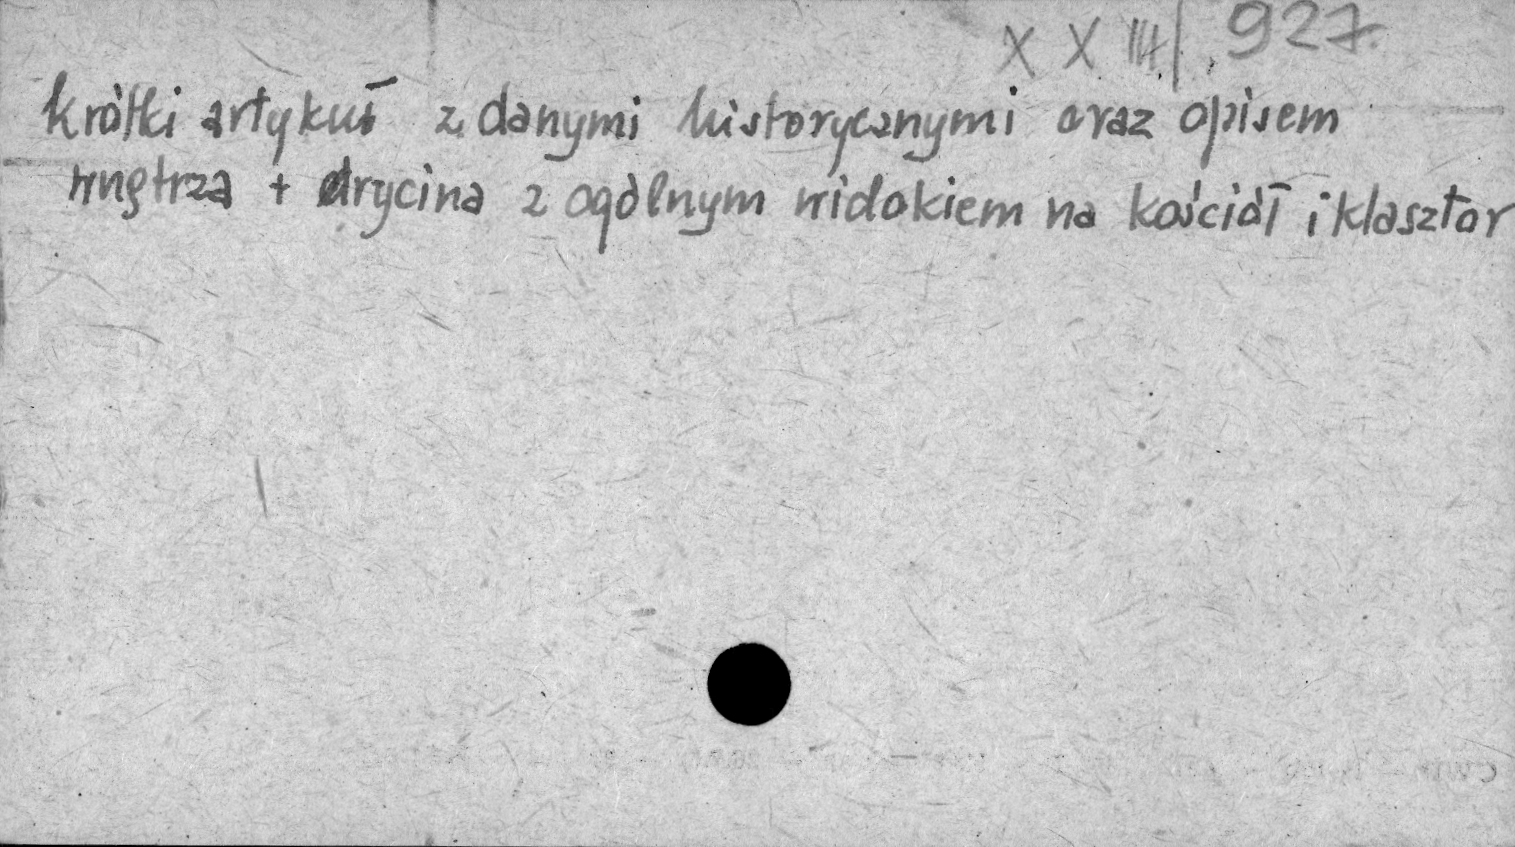 XXIII/927.
krótki artykuł z danymi historycznymi oraz opisem
wnętrza + drycina z ogólnym widokiem na kościół i klasztor